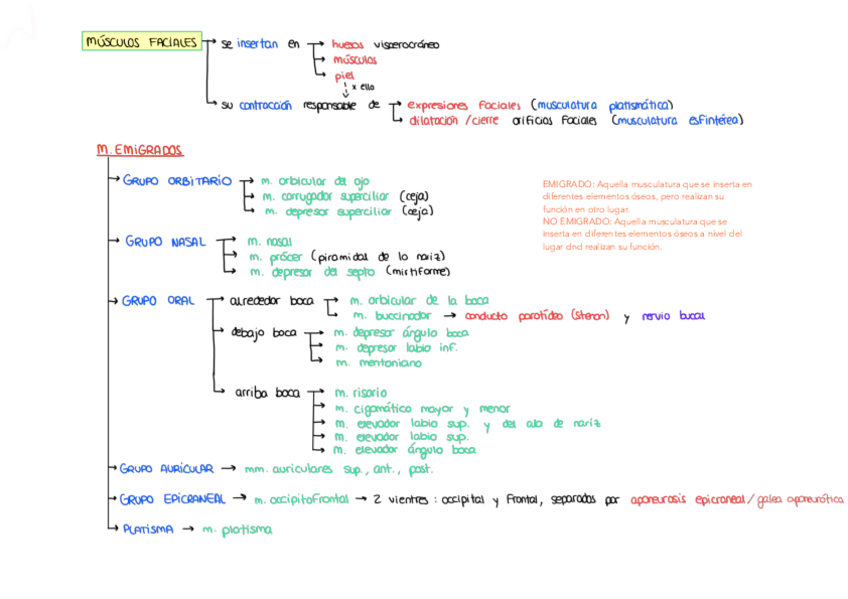 MÚSCULOS FACIALES → se insertan en → huesos viscerocráneo
→ músculos
→ piel
x ello
→ su contracción responsable de → expresiones faciales (musculatura platismática)
→ dilatación / cierre orificios faciales (musculatura esfintérea)
M. EMIGRADOS
→ GRUPO ORBITARIO → m. orbicular del ojo
→ m. corrugador superciliar (ceja)
→ m. depresor superciliar (ceja)
EMIGRADO: Aquella musculatura que se inserta en
diferentes elementos óseos, pero realizan su
función en otro lugar.
NO EMIGRADO: Aquella musculatura que se
inserta en diferentes elementos óseos a nivel del
lugar dnd realizan su función.
→ GRUPO NASAL → m. nasal
→ m. prócer (piramidal de la nariz)
→ m. depresor del septo (mirtiforme)
→ GRUPO ORAL → alrededor boca → m. orbicular de la boca
→ m. buccinador → conducto parotídeo (stenon) y nervio bucal
→ debajo boca → m. depresor ángulo boca
→ m. depresor labio inf.
→ m. mentoniano
→ arriba boca → m. risorio
→ m. cigomático mayor y menor
→ m. elevador labio sup. y del ala de nariz
→ m. elevador labio sup.
→ m. elevador ángulo boca
→ GRUPO AURICULAR → mm. auriculares sup., ant., post.
→ GRUPO EPICRANEAL → m. occipitofrontal → 2 vientres: occipital y frontal, separados por aponeurosis epicraneal / galea aponeurótica
→ PLATISMA → m. platisma